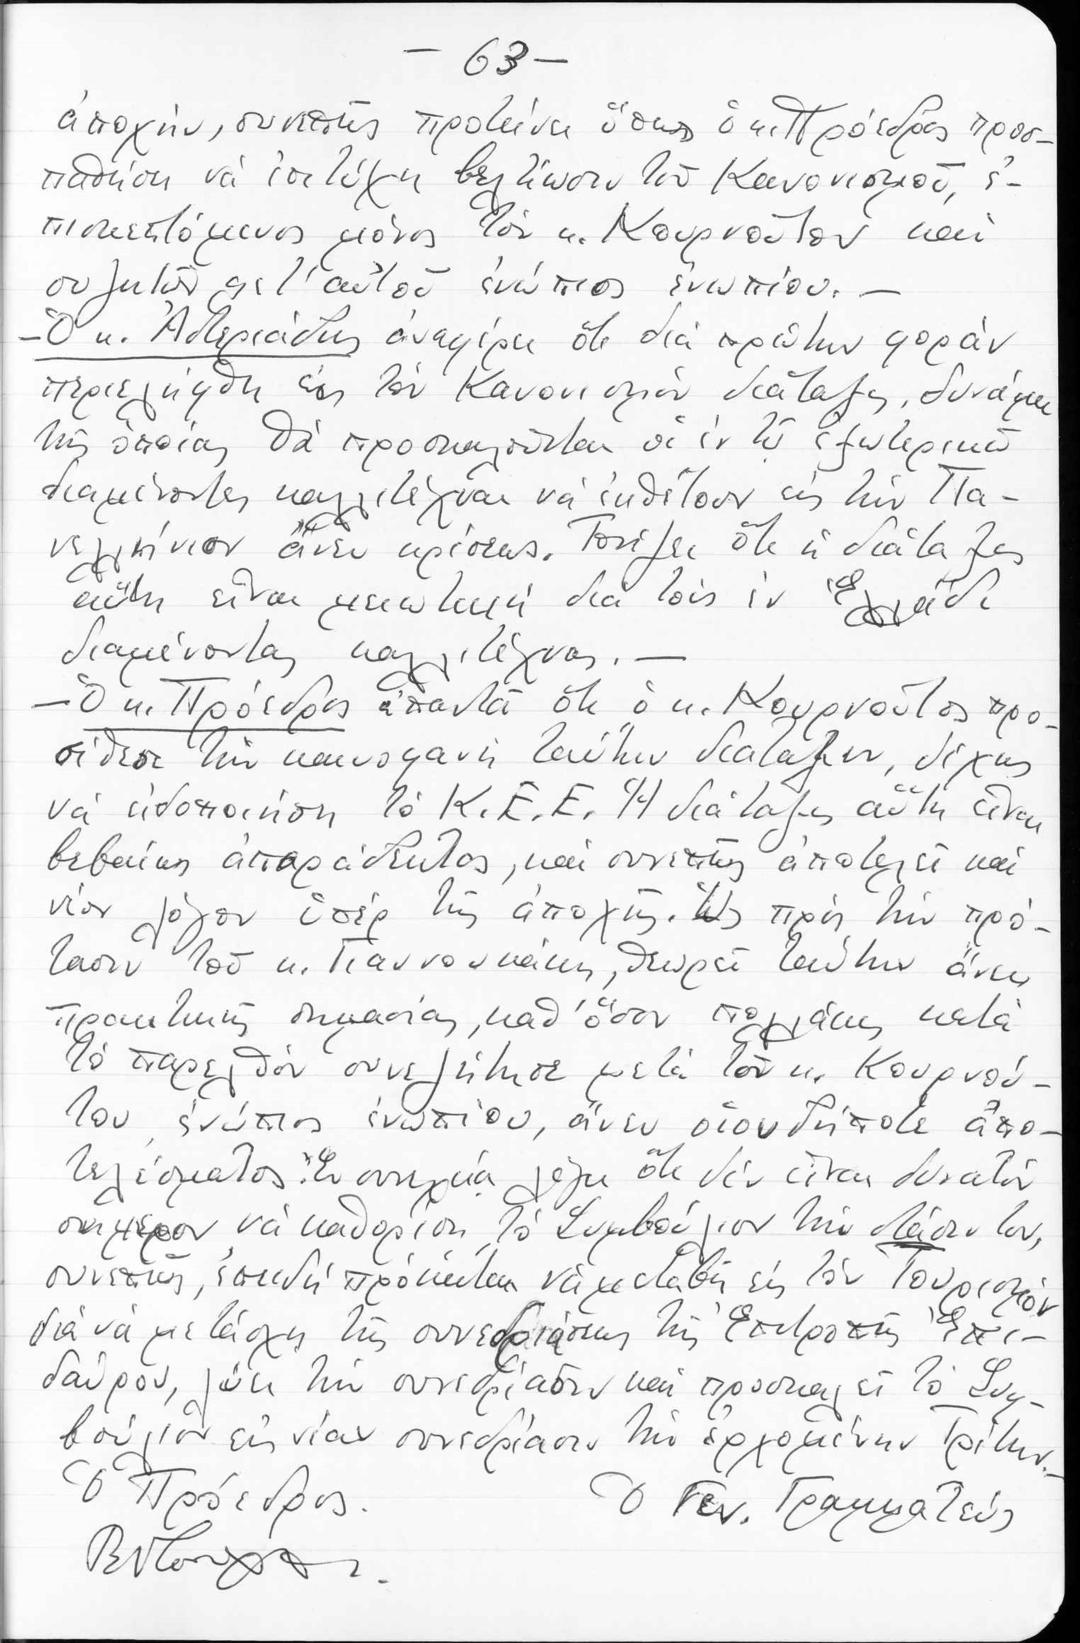 — 63 —
ἀποχήν, συνεπῶς προτείνει ὅπως ὁ κ. Πρόεδρος προσ-
παθήση νά ἐπιτύχη βελτίωσιν τοῦ Κανονισμοῦ, ἐ-
πισκεπτόμενος μόνος τόν κ. Κουρνοῦτον καί
συζητῶν μετ' αὐτοῦ ἐνώπιος ἐνωπίου. —
— Ὁ κ. Ἀστεριάδης ἀναφέρει ὅτι διά πρώτην φοράν
περιελήφθη εἰς τόν Κανονισμόν διάταξις, δυνάμει
τῆς ὁποίας θά προσκαλοῦνται οἱ ἐν τῷ ἐξωτερικῷ
διαμένοντες καλλιτέχναι νά ἐκθέτουν εἰς τήν Πα-
νελλήνιον ἄνευ κρίσεως. Τονίζει ὅτι ἡ διάταξις
αὕτη εἶναι μειωτική διά τούς ἐν Ἑλλάδι
διαμένοντας καλλιτέχνας. —
— Ὁ κ. Πρόεδρος ἀπαντᾶ ὅτι ὁ κ. Κουρνοῦτος προ-
σέθεσε τήν καινοφανῆ ταύτην διάταξιν, δίχως
νά εἰδοποιήση τό Κ.Ε.Ε. Ἡ διάταξις αὕτη εἶναι
βεβαίως ἀπαράδεκτος, καί συνεπῶς ἀποτελεῖ καί
νέον λόγον ὑπέρ τῆς ἀποχῆς. Ὡς πρός τήν πρό-
τασιν τοῦ κ. Γιαννουκάκη, θεωρεῖ ταύτην ἄνευ
πρακτικῆς σημασίας, καθ' ὅσον πολλάκις κατά
τό παρελθόν συνεζήτησε μετά τοῦ κ. Κουρνού-
του, ἐνώπιος ἐνωπίου, ἄνευ οἱουδήποτε ἀπο-
τελέσματος. Ἐν συνεχείᾳ λέγει ὅτι δέν εἶναι δυνατόν
σήμερον νά καθορίση τό Συμβούλιον τήν στάσιν του,
συνεπῶς, ἐπειδή πρόκειται νά μεταβῆ εἰς τόν Τουρισμόν
διά νά μετάσχη τῆς συνεδριάσεως τῆς Ἐπιτροπῆς Ἐπι-
δαύρου, λύει τήν συνεδρίασιν καί προσκαλεῖ τό Συμ-
βούλιον εἰς νέαν συνεδρίασιν τήν ἐρχομένην Τρίτην. —
Ὁ Πρόεδρος. Ὁ Γεν. Γραμματεύς